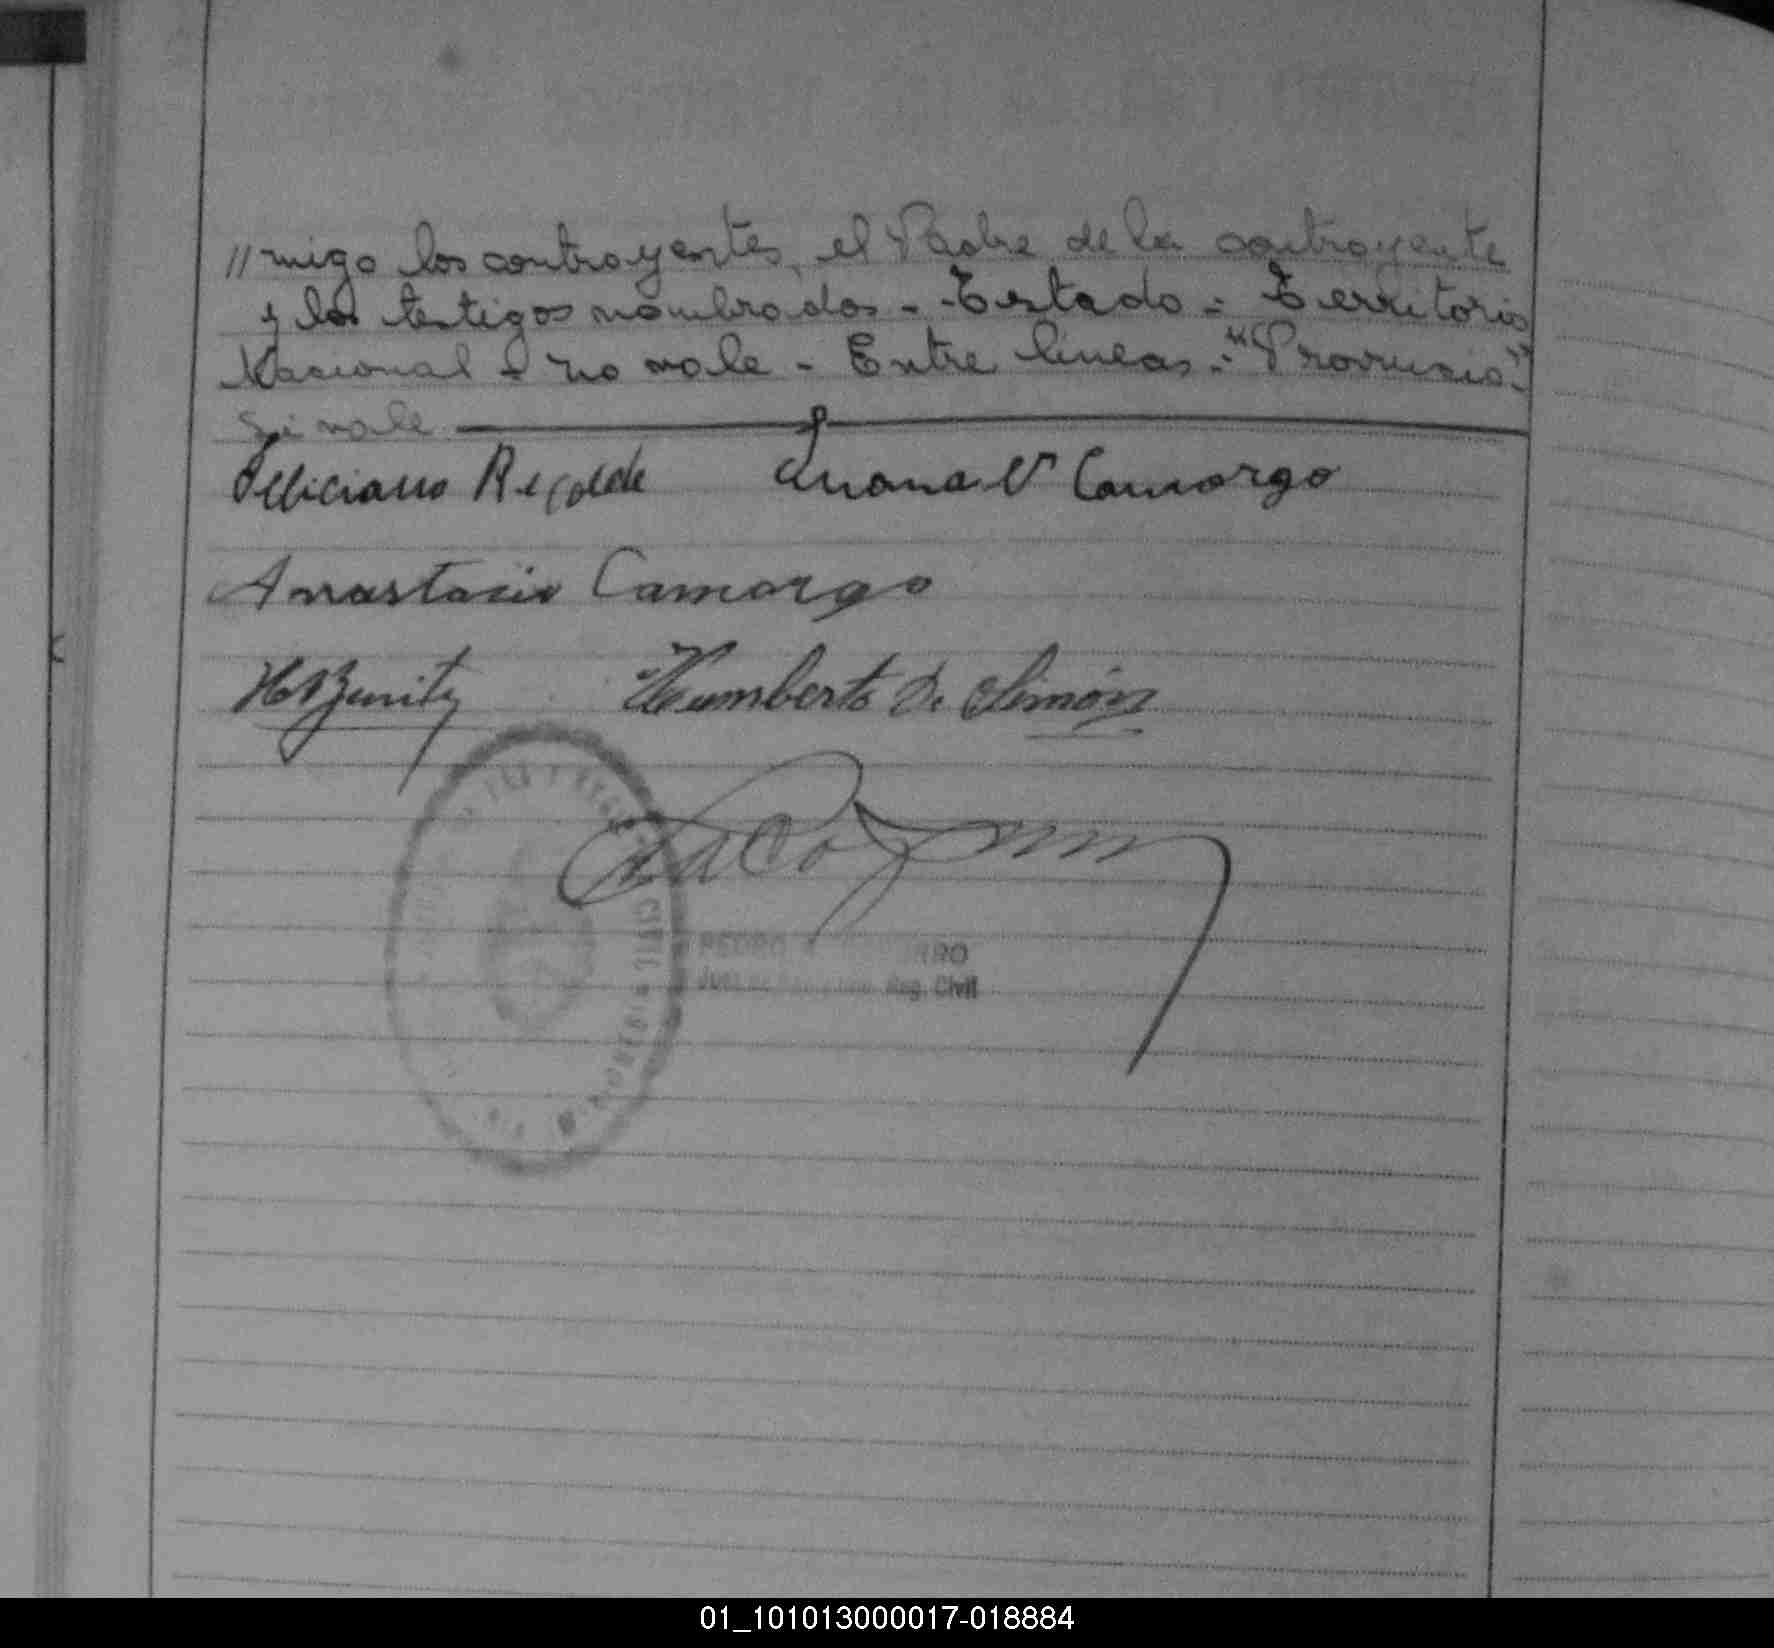 // migo los contrayentes, el Padre de la contrayente
y los testigos nombrados - Testado - Territorio
Nacional - no vale - Entre lineas - "Provincia" -
Si vale
Feliciano Recalde Juana V Camargo
Anastacio Camargo
Humberto D. Simón
PEDRO
Reg. Civil
01_101013000017-018884